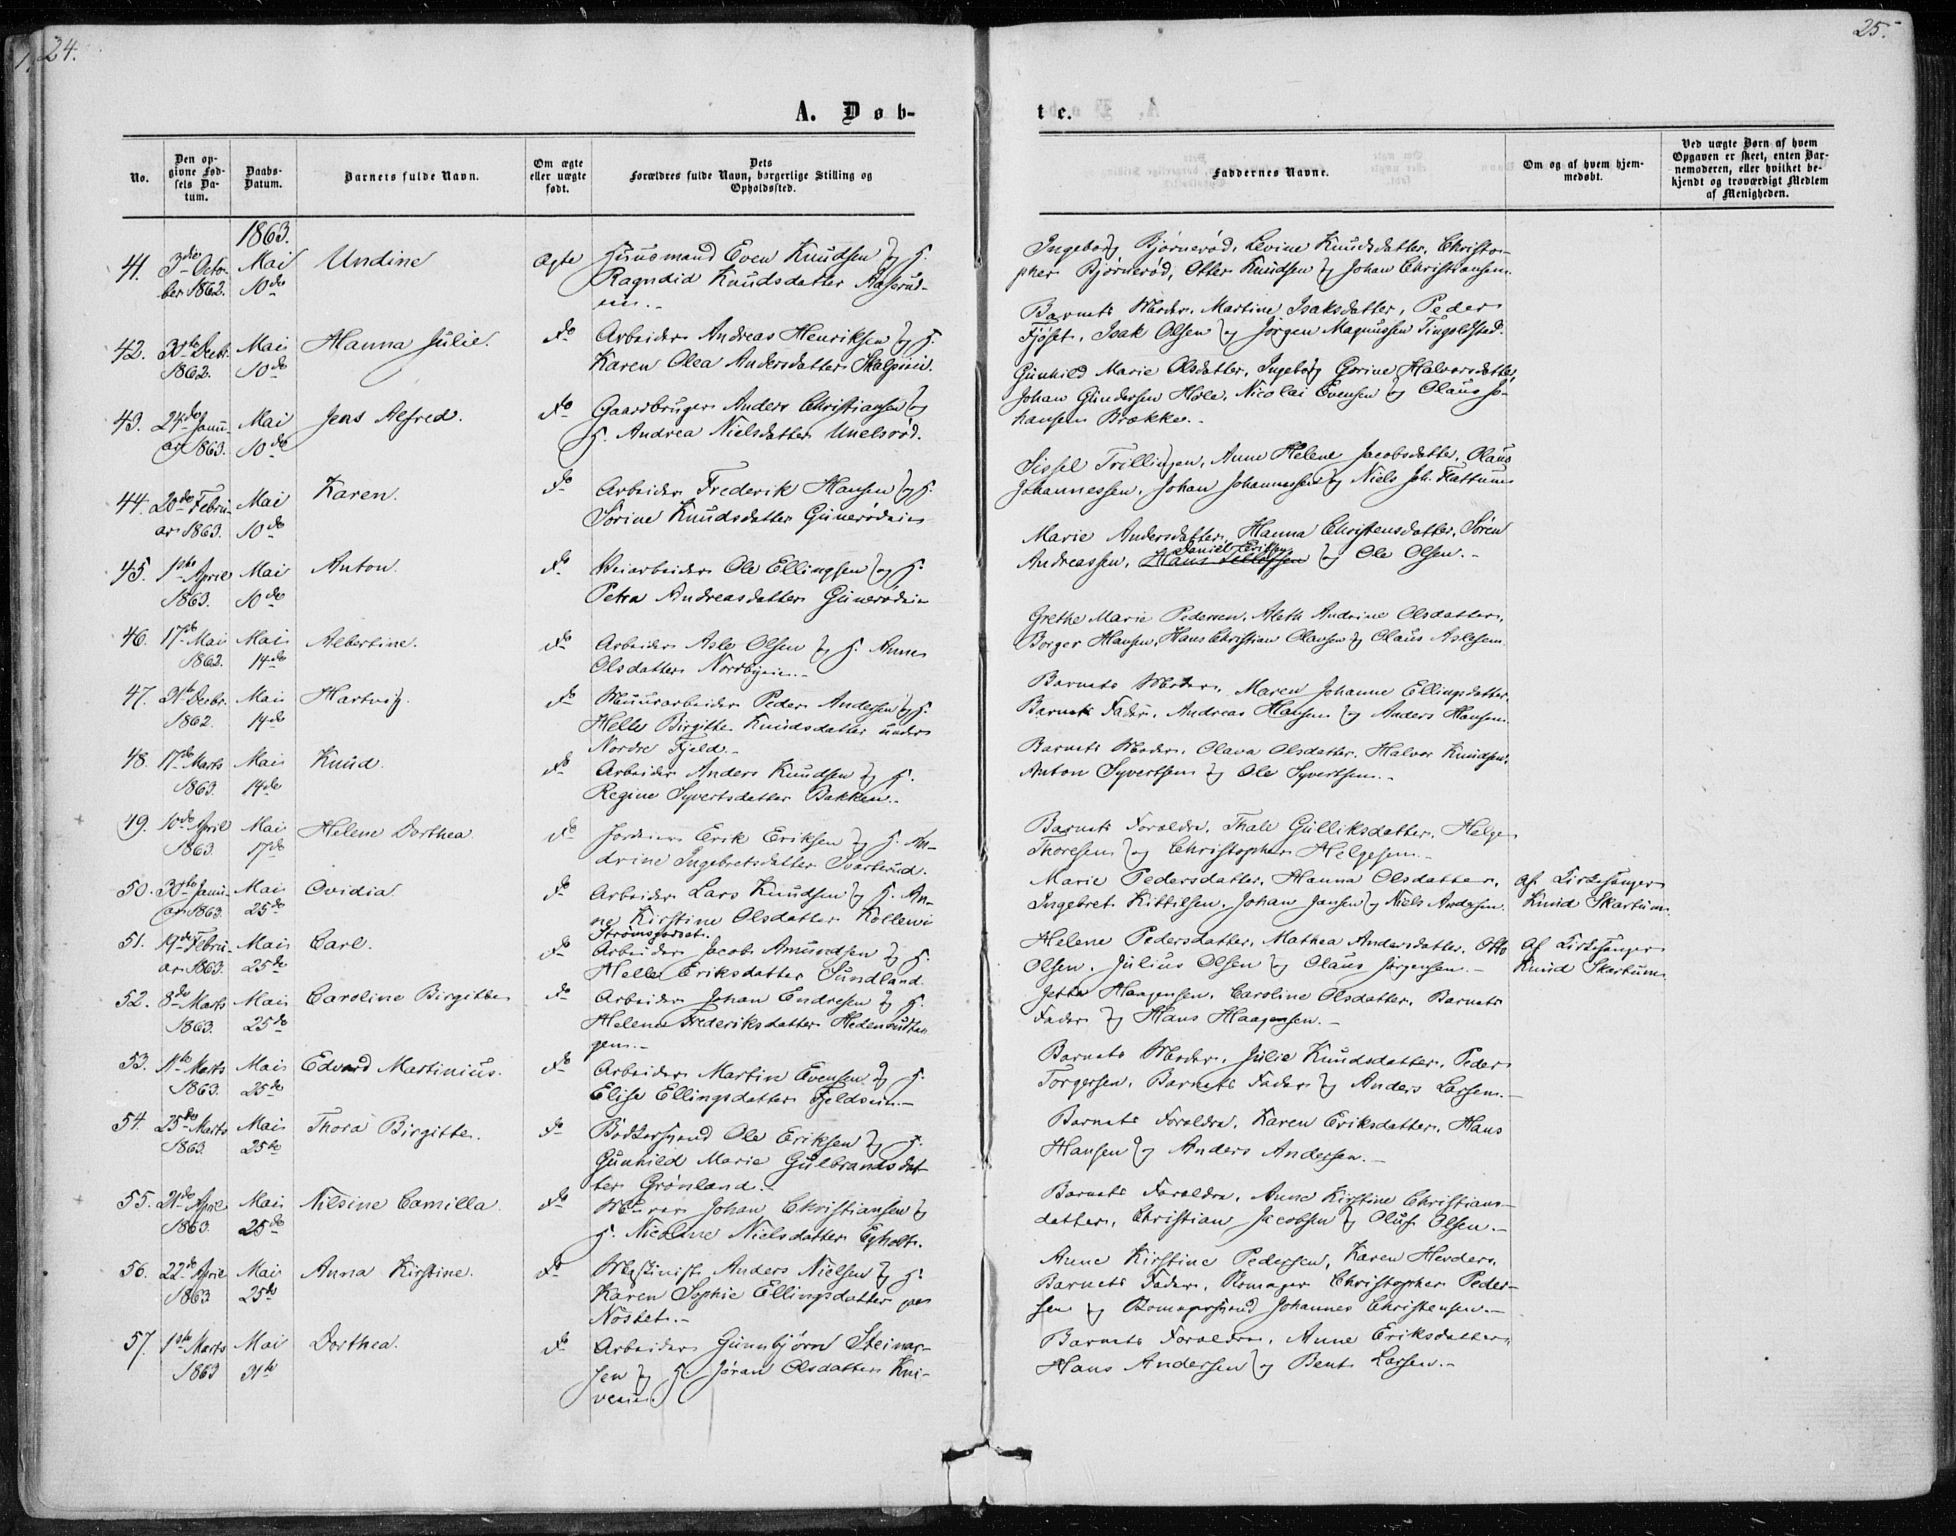 24.
25.
A. Døb-
te.
No.
Den opgivne Fødsels Datum.
Daabs-Datum.
Barnets fulde Navn.
Om ægte eller uægte født.
Dets Forældres fulde Navn, borgerlige Stilling og Opholdssted.
Faddernes Navne.
Om og af hvem hjemmedøbt.
Ved uægte Børn af hvem Opgaven er skeet, enten Barnemoderen, eller hvilket bekjendt og troværdigt Medlem af Menigheden.
1863.
41. 3die Octo- Mai Undine Ægte Huusmand Even Knudsen og H.
ber 1862. 10de Ragndid Knudsdatter
Ingeborg Bjørnerød, Levine Knudsdatter, Christo-
pher Bjørnerød, Otter Knudsen og Johan Christiansen.
42. 30te Decbr. Mai Hanna Julie. do Arbeider Andreas Henriksen og H.
1862. 10de Karen Olea Andersdatter
Barnets Moder, Martine Isaksdatter, Peder
Fjøset, Isak Olsen og Jørgen Magnussen Tingelstad.
43. 24de Janu- Mai Jens Alfred. do Gaardbruger Anders Christiansen og
ar 1863. 10de H. Andrea Nielsdatter Unelsrød.
Gunhild Marie Olsdatter, Ingeborg Gorine Halvorsdatter,
Johan Gundersen Hole, Nicolai Evensen og Olaus Jo-
hansen Brække.
44. 20de Febru- Mai Karen. do Arbeider Frederik Hansen og H.
ar 1863. 10de Sørine Knudsdatter Gunerødeie
Sissel Trillingen, Anne Helene Jacobsdatter, Olaus
Johannessen, Johan Johannessen og Niels Joh. Flattum
45. 1ste April Mai Anton. do Veiarbeider Ole Ellingsen og H.
1863. 10de Petra Andreasdatter Gunerødeie
Marie Andersdatter, Hanna Christensdatter, Søren
Daniel Eriksen
Andreassen, Hans og Ole Olsen.
46. 17de Mai Mai Albertine. do Arbeider Asle Olsen og H. Anne
1862. 14de Olsdatter Nordbyeie.
Grethe Marie Pedersen, Aleth Andrine Olsdatter,
Borger Hansen, Hans Christian Olausen og Olaus Aslesen.
47. 31te Decbr. Mai Hartvig. do Muurarbeider Peder Andersen og H.
1862. 14de Helle Birgitte Knudsdatter under
Nordre Fjeld.
Barnets Moder, Maren Johanne Ellingsdatter,
Barnets Fader, Andreas Hansen og Anders Hansen.
48. 17de Marts Mai Knud. do Arbeider Anders Knudsen og H.
1863. 14de Regine Syvertsdatter Bakken.
Barnets Moder, Olava Olsdatter, Halvor Knudsen,
Anton Syvertsen og Ole Syvertsen.
49. 10de April Mai Helene Dorthea. do Jordeier Erik Eriksen og H. An-
1863. 17de drine Ingebretsdatter Svarterud.
Barnets Forældre, Thale Gulliksdatter, Helge
Thoresen og Christopher Helgesen.
50. 30te Janu- Mai Ovidia. do Arbeider Lars Knudsen og H. An-
ar 1863. 25de ne Kirstine Olsdatter Kollewi
Strømsgodset.
Marie Pedersdatter, Hanna Olsdatter,
Ingebret Kittelsen, Johan Jansen og Niels Andersen.
af Kirkesanger
Knud Skartum.
51. 19de Febru- Mai Carl. do Arbeider Jacob Amundsen og H.
ar 1863. 25de Helle Eriksdatter Sundland.
Helene Pedersdatter, Mathea Andersdatter, Otto
Olsen, Julius Olsen og Olaus Jørgensen.
af Kirkesanger
Knud Skartum
52. 8de Marts Mai Caroline Birgitte do Arbeider Johan Endresen og H.
1863. 25de Helena Frederiksdatter
Jette Haagensen, Caroline Olsdatter, Barnets
Fader og Hans Haagensen.
53. 11te Marts Mai Edvard Martinius. do Arbeider Martin Evensen og H.
1863. 25de Elise Ellingsdatter Fjeldseie.
Barnets Moder, Julie Knudsdatter, Peder
Torgersen, Barnets Fader og Anders Larsen.
54. 25de Marts Mai Thora Birgitte. do Bødkersvend Ole Eriksen og H.
1863. 25de Gunhild Marie Gulbrandsdat-
ter Grønland.
Barnets Forældre, Karen Eriksdatter, Hans
Hansen og Anders Andersen.
55. 21de April Mai Nilsine Camilla. do Murer Johan Christiansen og
1863. 25de H. Nicoline Nielsdatter Egholt.
Barnets Forældre, Anne Kirstine Christians-
datter, Christian Jacobsen og Oluf Olsen.
56. 22de April Mai Anna Kirstine. do Maskinist Anders Nielsen og H.
1863 25de Karen Sophie Ellingsdatter paa
Nøstet.
Anne Kirstine Pedersen, Karen Herder,
Barnets Fader, Romager Christopher Peder-
sen og Romagersvend Johannes Christensen.
57. 1ste Marts Mai Dorthea. do Arbeider Gunnbjørn Steinar-
1863 31te sen og H. Jøran Olsdatter Kni-
veeie.
Barnets Forældre, Anne Eriksdatter,
Hans Andersen og Bent Larsen.